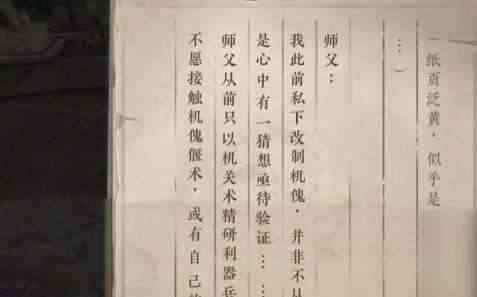 纸页泛黄，似乎是
…）
师父：
我此前私下改制机傀，并非不
是心中有一猜想亟待验证……
师父从前只以机关术精研利器
不愿接触机傀偃术，或有自己